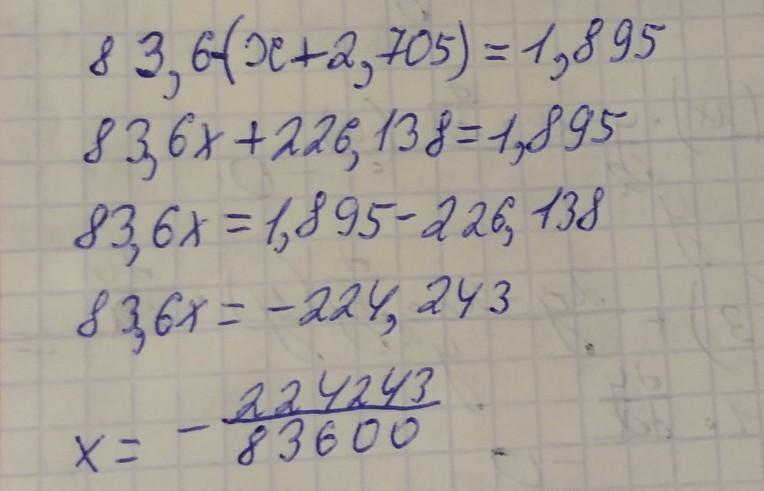 83,6-(x+2,705)=1,895
83,6x+226,138=1,895
83,6x=1,895-226,138
83,6x=-224,243
x=-224243/83600